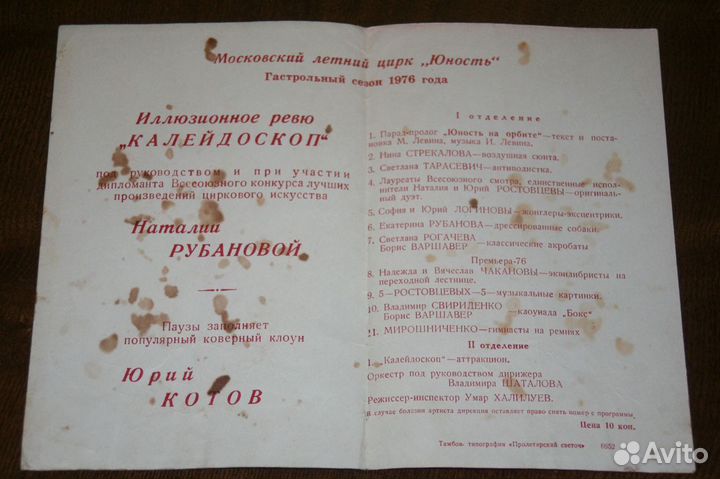 Московский летний цирк „Юность"
Гастрольный сезон 1976 года
Иллюзионное ревю
„КАЛЕЙДОСКОП"
под руководством и при участии
дипломанта Всесоюзного конкурса лучших
произведений циркового искусства
Наталии
РУБАНОВОЙ
Паузы заполняет
популярный коверный клоун
Юрий
КОТОВ
I отделение
1. Парад-пролог „Юность на орбите"—текст и поста-
новка М. Левина, музыка И. Левина.
2. Нина СТРЕКАЛОВА—воздушная сюита.
3. Светлана ТАРАСЕВИЧ—антиподистка.
4. Лауреаты Всесоюзного смотра, единственные испол-
нители Наталия и Юрий РОСТОВЦЕВЫ—оригиналь-
ный дуэт.
5. София и Юрий ЛОГИНОВЫ—жонглеры-эксцентрики.
6. Екатерина РУБАНОВА—дрессированные собаки.
7. Светлана РОГАЧЕВА
Борис ВАРШАВЕР—классические акробаты
Премьера-76
8. Надежда и Вячеслав ЧАКАНОВЫ—эквилибристы на
переходной лестнице.
9. 5—РОСТОВЦЕВЫХ—5—музыкальные картинки.
10. Владимир СВИРИДЕНКО
Борис ВАРШАВЕР—клоунада „Бокс"
21. МИРОШНИЧЕНКО—гимнасты на ремнях
II отделение
1. „Калейдоскоп"—аттракцион.
Оркестр под руководством дирижера
Владимира ШАТАЛОВА
Режиссер-инспектор Умар ХАЛИЛУЕВ.
В случае болезни артиста дирекция оставляет право снять номер с программы
Цена 10 коп.
Тамбов. типография «Пролетарский светоч» 6652
Avito